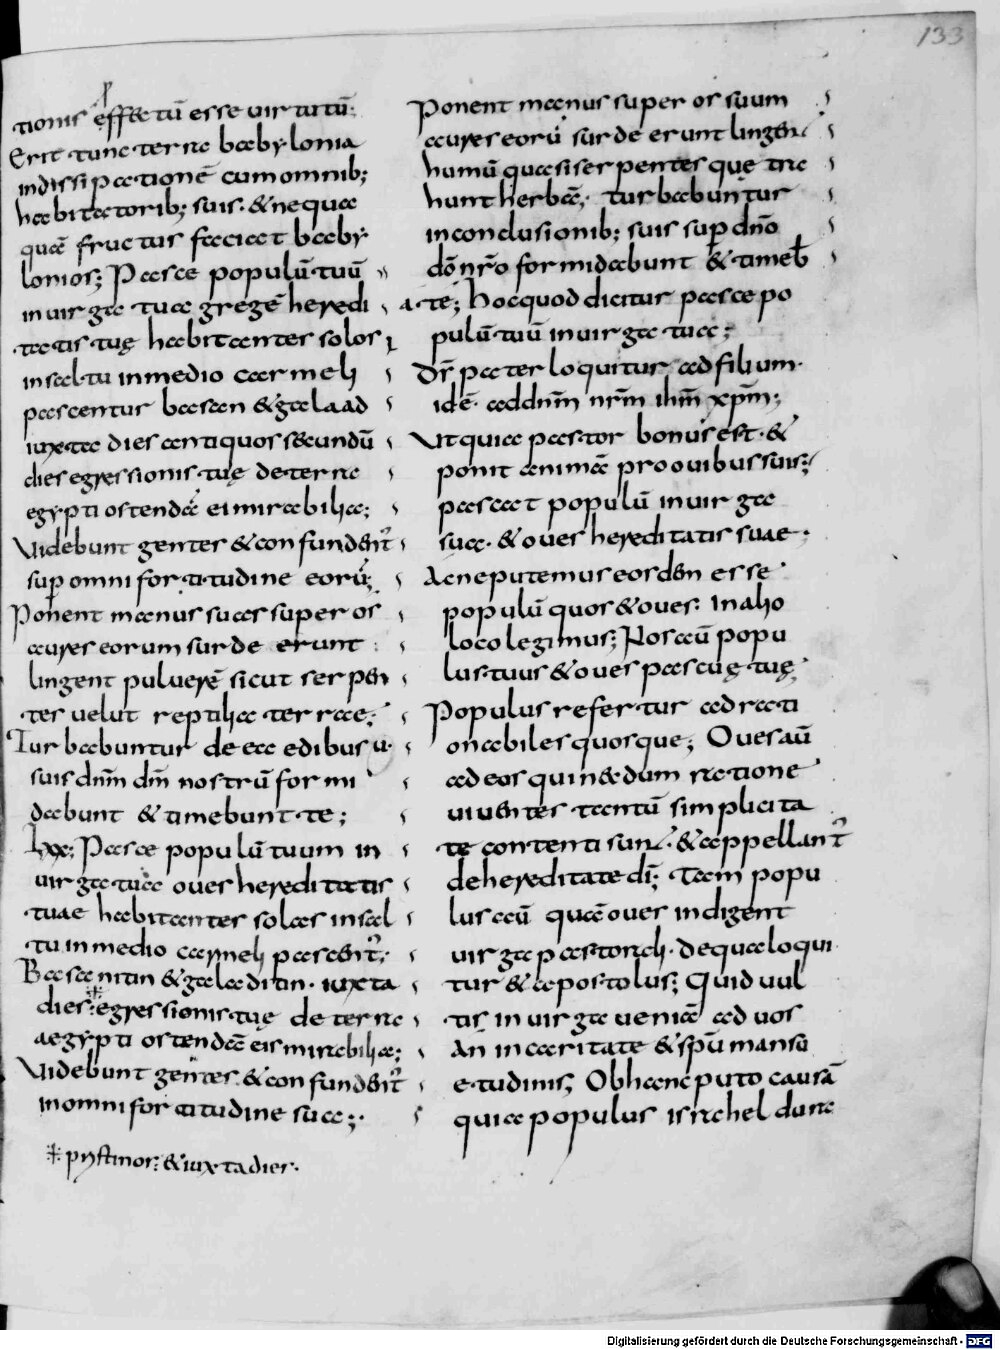 133
tionis effectū esse uirtutū.
Erit tunc terra babylonia
in dissipationē cum omnib;
habitatorib; suis. & nequa
quā fructus faciat baby
lonios; Pasce populū tuū
in uirga tua gregē heredi
tatis tuę habitantes solos
in saltu in medio carmeli
pascentur basan & galaad
iuxta dies antiquos secundū
dies egressionis tuę de terra
egypti ostendā ei mirabilia;
Uidebunt gentes & confundent᷑
sup omni fortitudine eorū;
Ponent manus suas super os
aures eorum surde erunt
lingent puluerē sicut serpen
tes uelut reptilia terrae;
Turbabuntur de ea edibus
suis dn̄m dm̄ nostrū formi
dabunt & timebunt te;
Lxx; Pasce populū tuum in
uirga tua oues hereditatis
tuae habitantes solas in sal
tu in medio carmeli pascent᷑;
Basanitin & galaaditin. iuxta
dies egressionis tuę de terra
aegypti ostendā eis mirabilia;
Uidebunt gentes & confundent᷑
in omni fortitudine sua;
pristinos: & iuxta dies.
Ponent manus super os suum
aures eorū surde erunt lingent
humū quasi serpentes quę tra
hunt herbā. turbabuntur
in conclusionib; suis sup dn̄o
dō nr̄o formidabunt & timeb
a te; Hoc quod dicitur pasce po
pulū tuū in uirga tua;
Dr̄ pater loquitur ad filium.
idē. ad dnm̄ nrm̄ ihm̄ xpm̄;
Ut quia pastor bonus est. &
ponit animā pro ouibus suis;
pascat populū in uirga
sua. & oues hereditatis suae;
Ac ne putemus eosdem esse
populū quos & oues: In alio
loco legimus; Nos aū popu
lus tuus & oues pascuę tuę;
Populus refertur ad rati
onabiles quosque; Oues aū
ad eos qui necdum ratione
uiuentes tantū simplicita
te contenti sunt. & appellant᷑
de hereditate dī; Tam popu
lus aū quā oues indigent
uirga pastorali. de qua loqui
tur & apostolus; Quid uul
tis in uirga ueniā ad uos
An in caritate & spū mansu
etudinis; Ob hanc puto causā
quia populus israhel dura
Digitalisierung gefördert durch die Deutsche Forschungsgemeinschaft - DFG